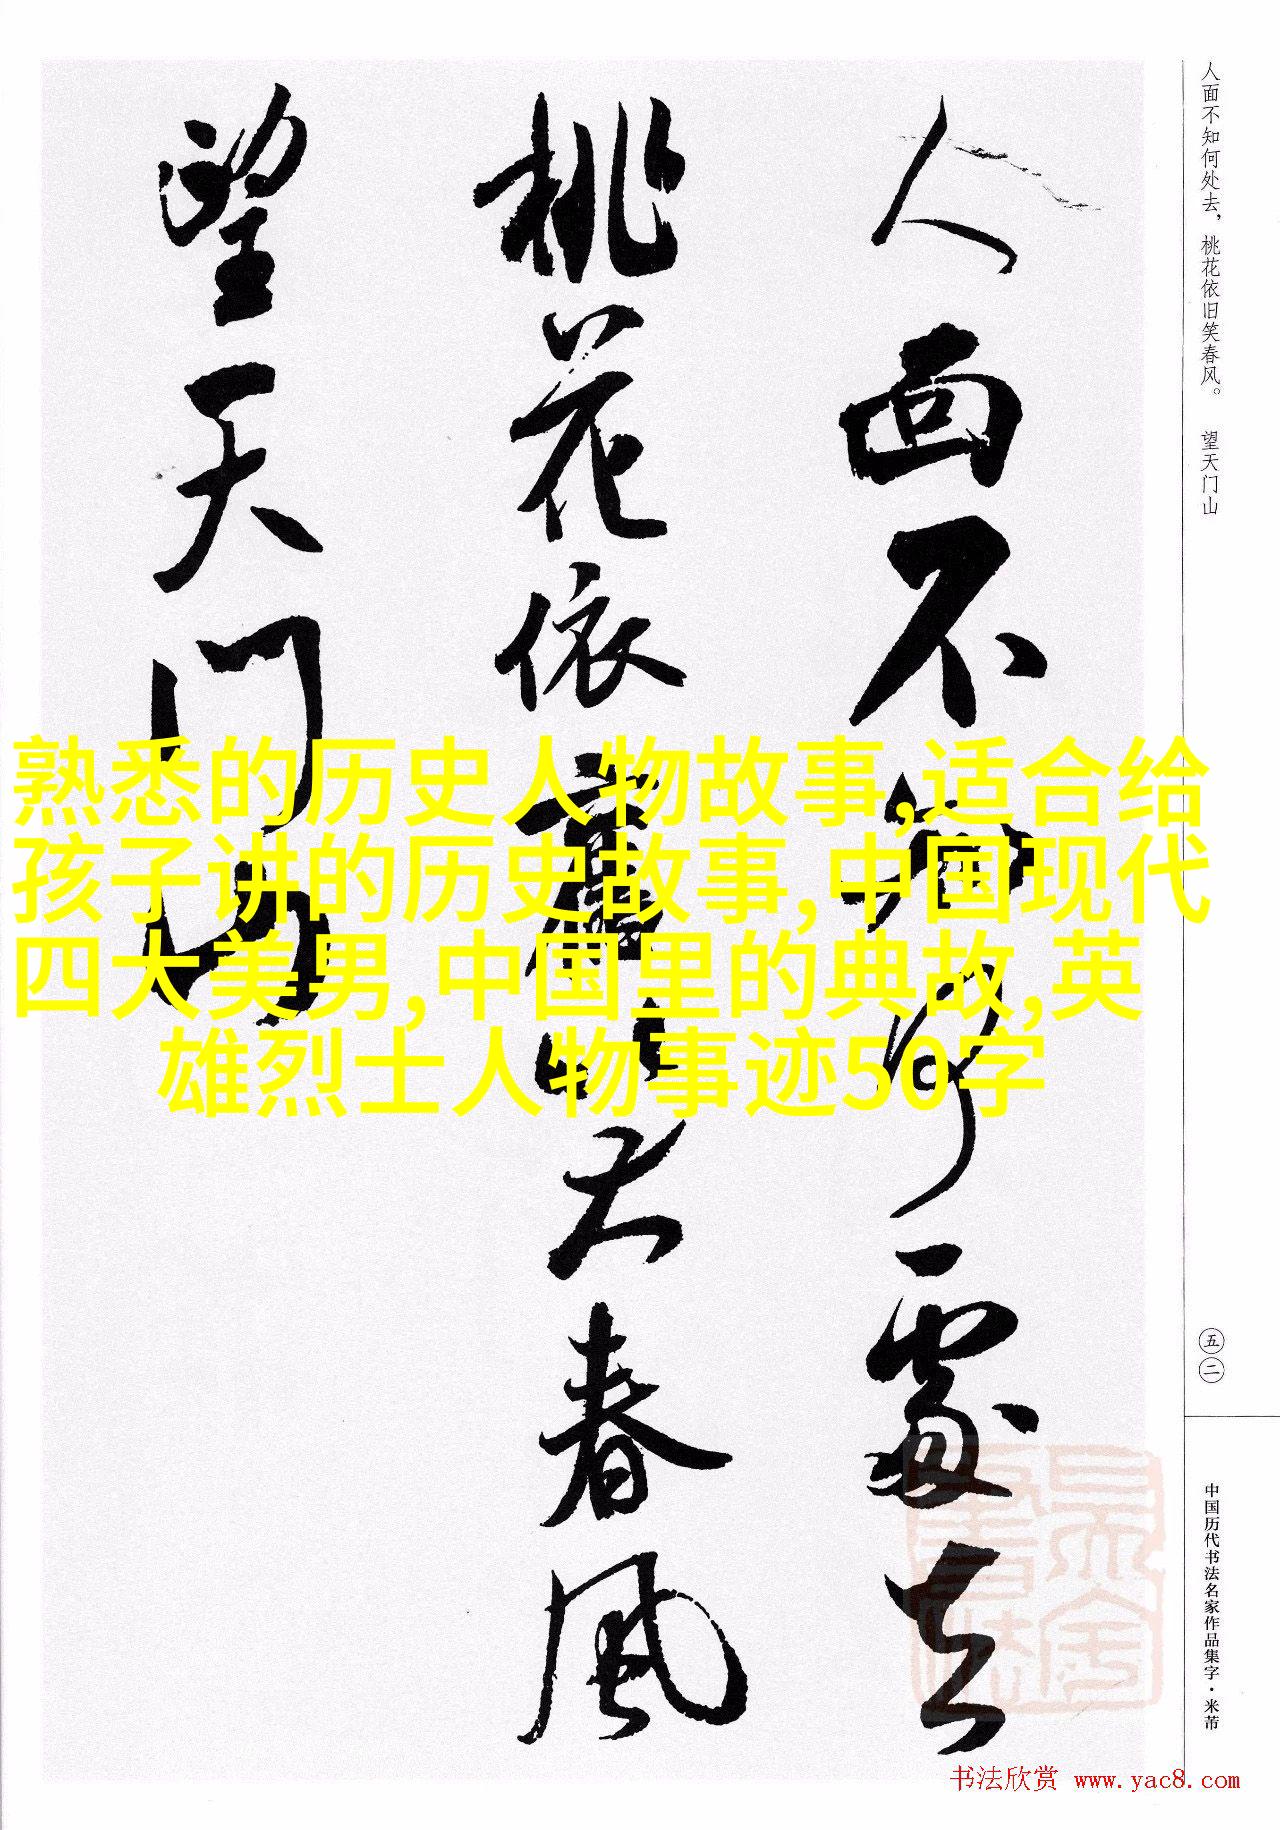 人面不知何處去
桃花依舊笑春風
望天门山
人面不知何处去，桃花依旧笑春风。 望天门山
熟悉的历史人物故事,适合给
孩子讲的历史故事,中国现代
四大美男,中国里的典故,英
雄烈士人物事迹50字
五二
中国历代书法名家作品集字·米芾
书法欣赏 www.yac8.com